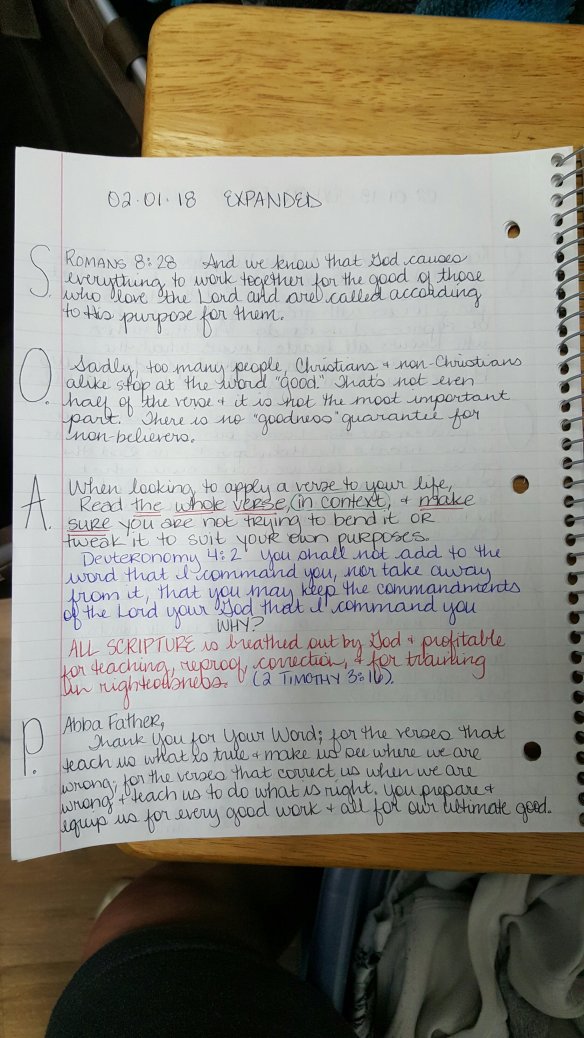 02.01.18 EXPANDED
S. ROMANS 8:28 And we know that God causes
everything to work together for the good of those
who love the Lord and are called according
to His purpose for them.
O. Sadly, too many people, Christians + non-Christians
alike stop at the word "good." That's not even
half of the verse + it is not the most important
part. There is no "goodness" guarantee for
non-believers.
A. When looking to apply a verse to your life,
Read the whole verse, (in context), + make
sure you are not trying to bend it OR
tweak it to suit your own purposes.
Deuteronomy 4:2 you shall not add to the
word that I command you, nor take away
from it, that you may keep the commandments
of the Lord your God that I command you
WHY?
ALL SCRIPTURE is breathed out by God + profitable
for teaching, reproof, correction, + for training
in righteousness. (2 TIMOTHY 3:16).
P. Abba Father,
Thank You for Your Word; for the verses that
teach us what is true + make us see where we are
wrong; for the verses that correct us when we are
wrong + teach us to do what is right. You prepare +
equip us for every good work + all for our ultimate good.